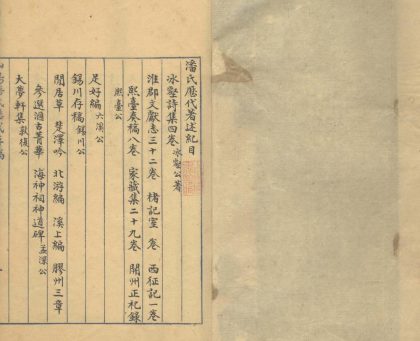 潘氏歷代著述紀目
冰壑詩集四卷 冰壑公著
淮郡文獻志三十二卷 楮記室 卷 西征記一卷
熙臺奏稿八卷 家藏集二十九卷 開州正祀錄
熙臺公
足好編 六溪公
錫川存稿 錫川公
閒居草 楚澤吟 北游編 溪上編 膠州三章
參選涸古菁華 海神祠神道碑 孟深公
大夢軒集 敦復公